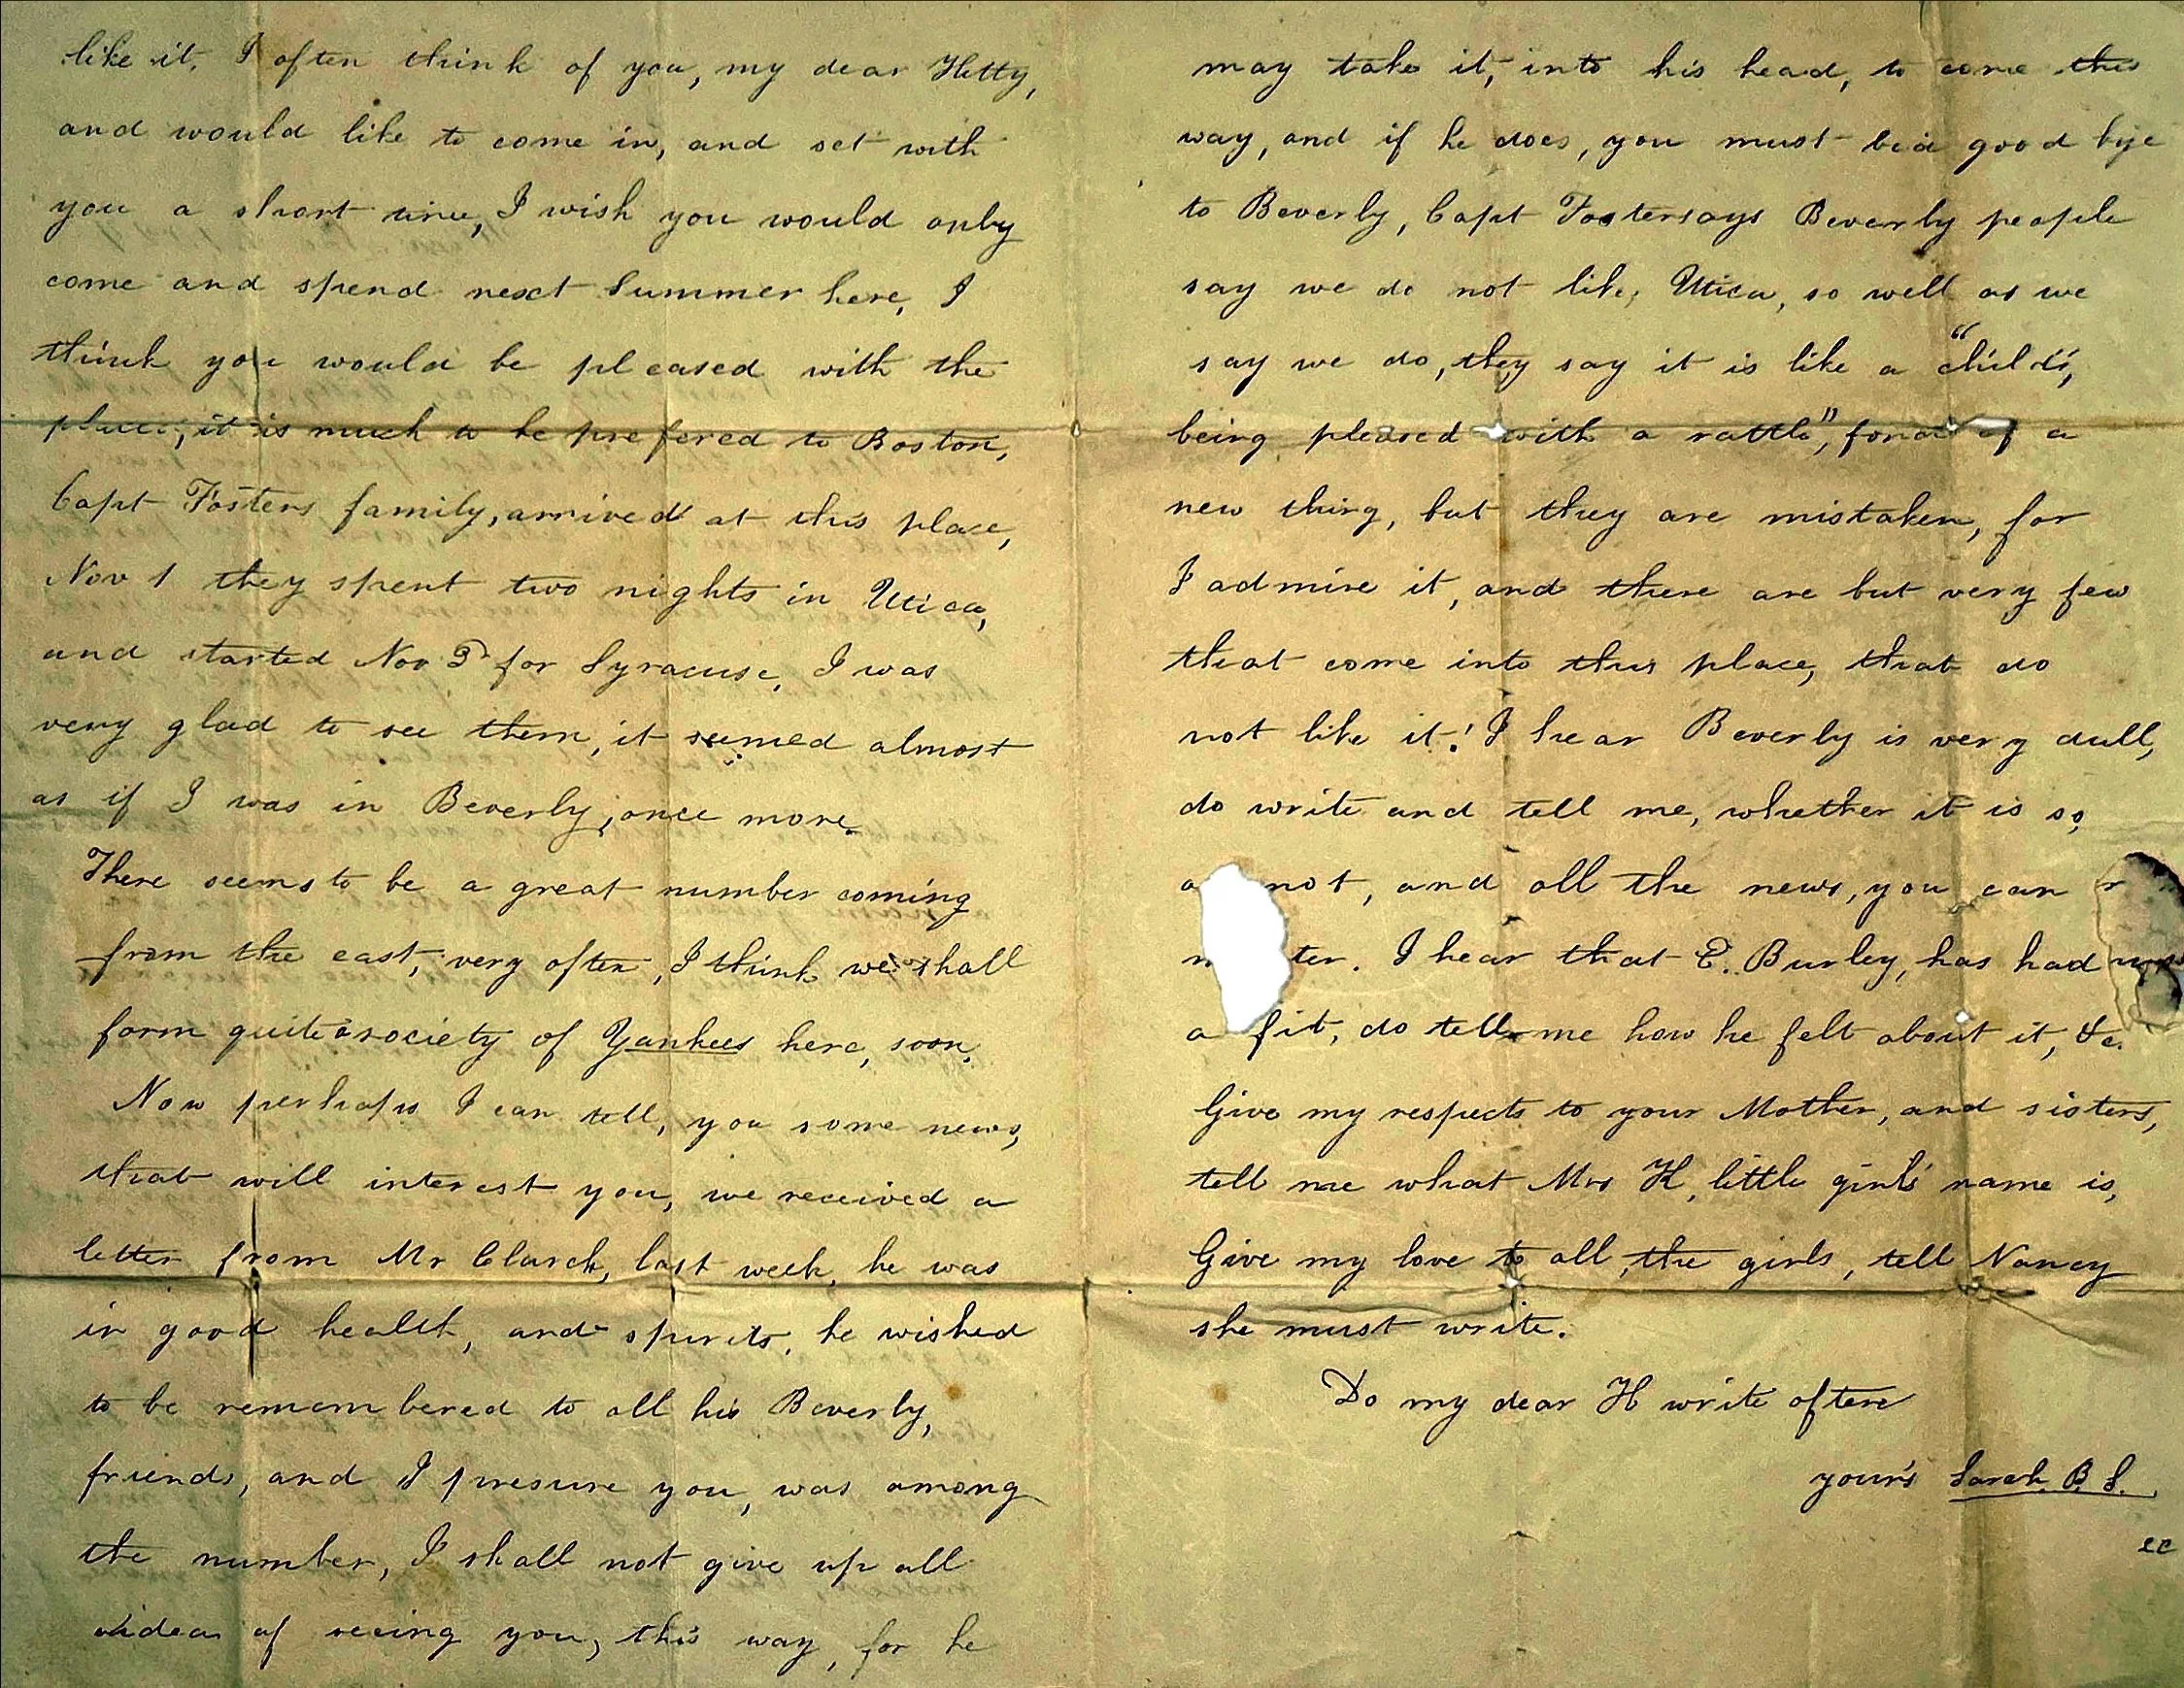 like it. I often think of you, my dear Hetty,
and would like to come in, and set with
you a short time, I wish you would only
come and spend next Summer here, I
think you would be pleased with the
place, it is much to be prefered to Boston,
Capt Fosters family, arrived at this place,
Nov 1 they spent two nights in Utica,
and started Nov 3d for Syracuse, I was
very glad to see them, it seemed almost
as if I was in Beverly, once more.
There seems to be a great number coming
from the east, very often, I think we shall
form quite a society of Yankees here, soon.
Now perhaps I can tell, you some news,
that will interest you, we received a
letter from Mr Clarck, last week, he was
in good health, and spirits, he wished
to be remembered to all his Beverly,
friends, and I presume you, was among
the number, I shall not give up all
idea of seeing you, this way, for he
may take it, into his head, to come this
way, and if he does, you must bid good bye
to Beverly, Capt Foster says Beverly people
say we do not like, Utica, so well as we
say we do, they say it is like a "child's,
being pleased with a rattle", fond of a
new thing, but they are mistaken, for
I admire it, and there are but very few
that come into this place, that do
not like it! I hear Beverly is very dull,
do write and tell me, whether it is so,
not, and all the news, you can
ter. I hear that E. Burley, has had
a fit, do tell me how he felt about it, &c.
Give my respects to your Mother, and sisters,
tell me what Mrs H, little girl's name is,
Give my love to all, the girls, tell Nancy
she must write.
Do my dear H write often
your's Sarah. B. S.